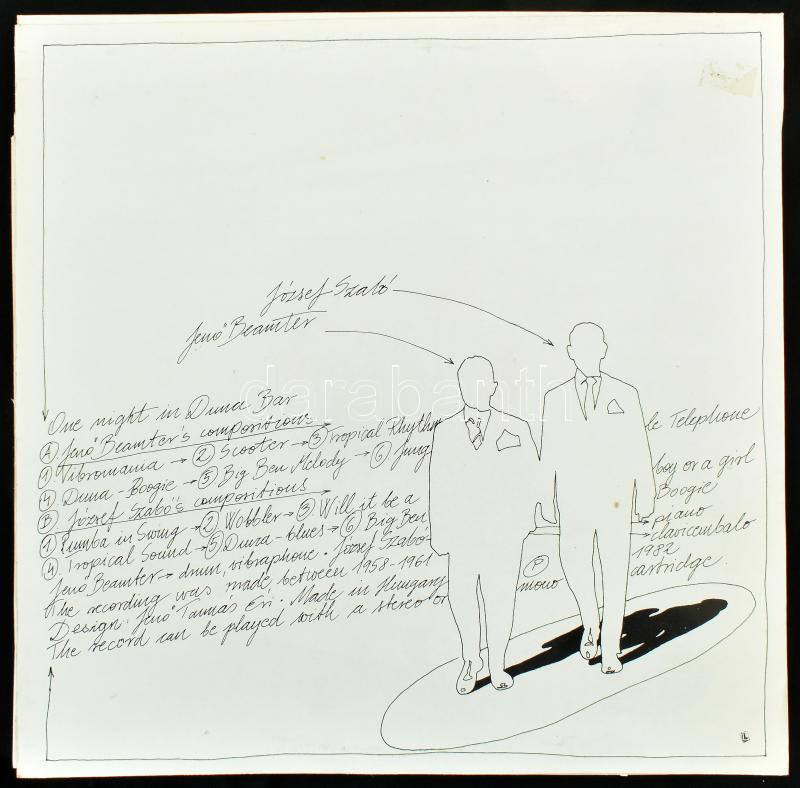 József Szabó
Jenő Beamter
One night in Duna Bar
Ⓐ Jenő Beamter's compositions
① Vibromania → ② Scooter → ③ Tropical Rhythm le Telephone
④ Duna-Boogie → ⑤ Big Ben Melody → ⑥ Jung
Ⓑ József Szabó's compositions
① Rumba in Swing → ② Wobbler → ③ Will it be a boy or a girl
④ Tropical Sound → ⑤ Duna-blues → ⑥ Big Ben Boogie
Jenő Beamter → drum, vibraphone. József Szabó → piano
→ clavicembalo
The recording was made between 1958-1961 Ⓟ 1982
Design: Jenő Tamás Éri. Made in Hungary
The record can be played with a stereo or mono cartridge.
darabanth